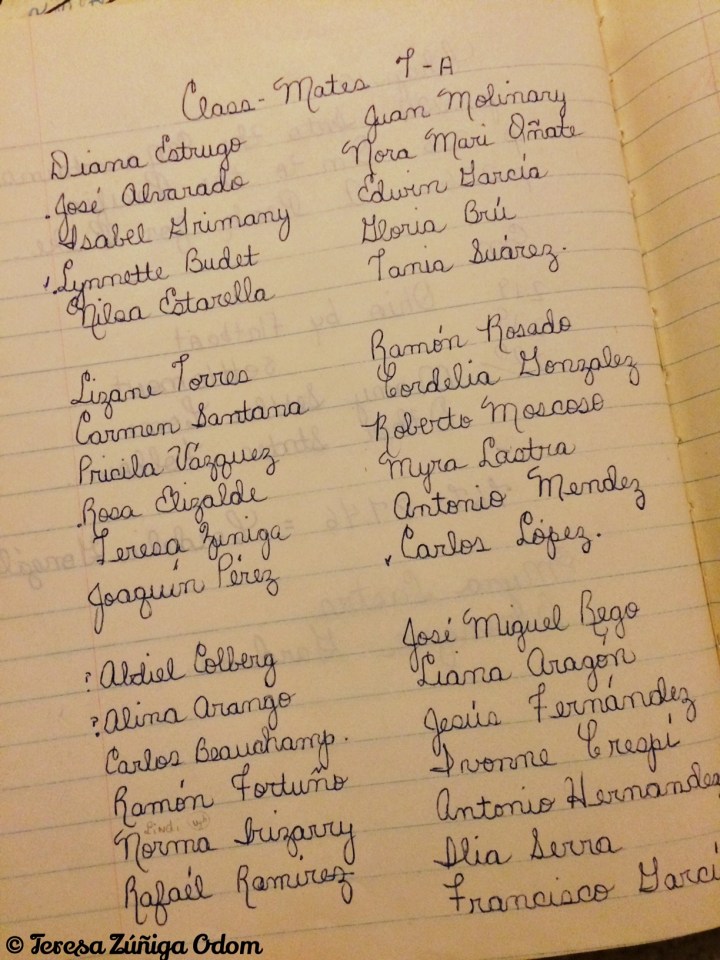 Class-Mates 7-A
Diana Estrugo
José Alvarado
Isabel Grimany
Lynnette Budet
Nilsa Estarella
Juan Molinary
Nora Mari Oñate
Edwin García
Gloria Brú
Tania Suárez.
Lizane Torres
Carmen Santana
Pricila Vázquez
Rosa Elizalde
Teresa Zuniga
Joaquín Pérez
Ramón Rosado
Cordelia Gonzalez
Roberto Moscoso
Myra Lastra
Antonio Mendez
Carlos López.
? Abdiel Colberg
? Alina Arango
Carlos Beauchamp.
Ramón Fortuño
Norma Irizarry
Rafaél Ramirez
José Miguel Bego
Liana Aragón
Jesús Fernández
Ivonne Crespí
Antonio Hernandez
Ilia Serra
Francisco Garcí
© Teresa Zúñiga Odom